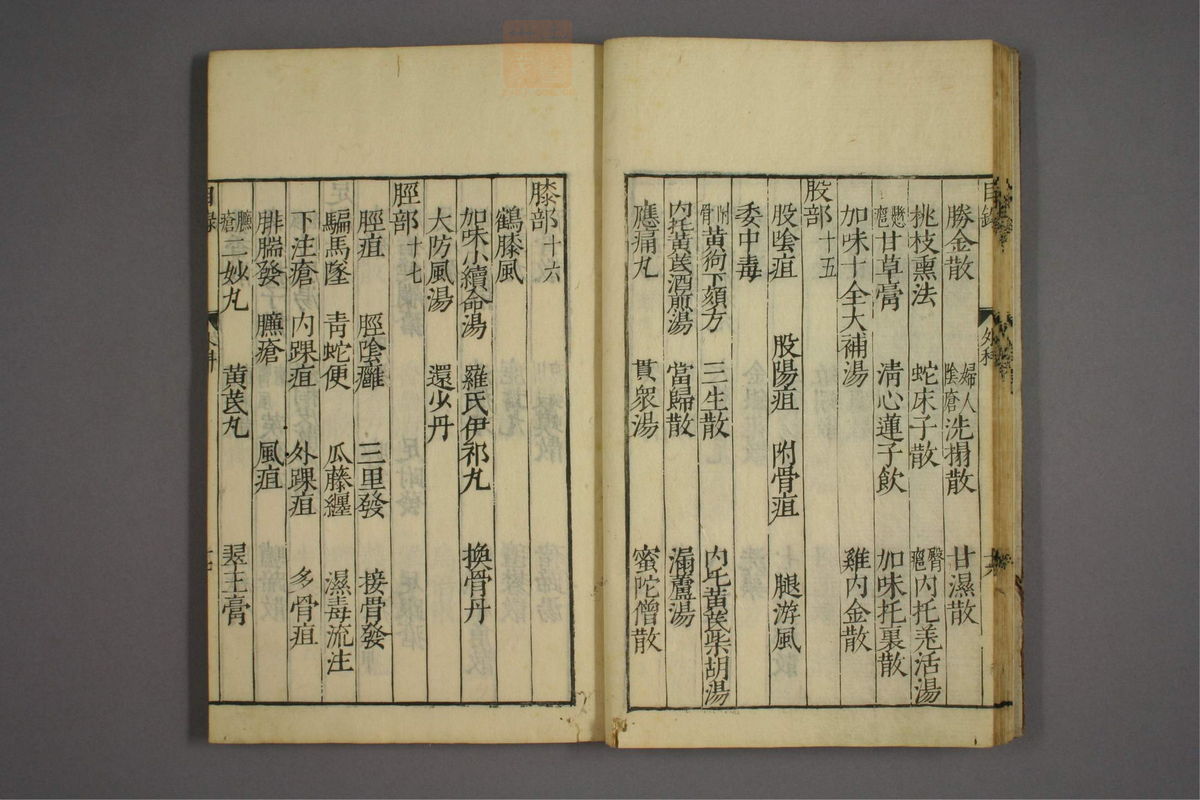 目錄 外科 十六
勝金散 婦人陰瘡洗搨散 甘濕散
桃枝熏法 蛇床子散 臀癰內托羌活湯
懸癰甘草膏 清心蓮子飲 加味托裏散
加味十全大補湯 雞內金散
股部十五
股陰疽 股陽疽 附骨疽 腿游風
委中毒
附骨黃狗下頦方 三生散 內托黃芪柴胡湯
內托黃芪酒煎湯 當歸散 漏蘆湯
應痛丸 貫衆湯 蜜陀僧散
膝部十六
鶴膝風
加味小續命湯 羅氏伊祁丸 換骨丹
大防風湯 還少丹
脛部十七
脛疽 脛陰癰 三里發 接骨發
騙馬墜 青蛇便 瓜藤纏 濕毒流注
下注瘡 內踝疽 外踝疽 多骨疽
腓腨發 臁瘡 風疽
臁瘡三妙丸 黃芪丸 翠玉膏
目錄 外科